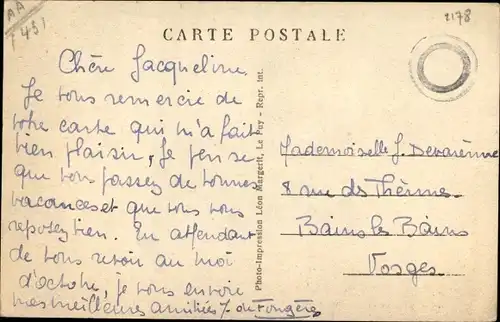 AA
1431
2178
CARTE POSTALE
Chère Jacqueline
Je vous remercie de
votre carte qui m'a fait
bien plaisir, je pense
que vous passez de bonnes
vacances et que vous vous
reposez bien. En attendant
de vous revoir au moi
d'octobre, je vous envoie
mes meilleures amitiés de Fongères
Photo-Impression Léon Margerit, Le Puy - Repr. int.
Mademoiselle J. Devarenne
8 rue des Thermes
Bains les Bains
Vosges